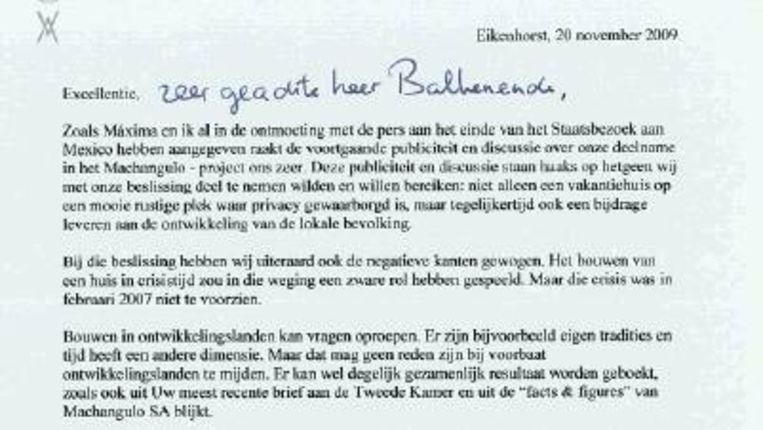 Eikenhorst, 20 november 2009
Excellentie, zeer geachte heer Balkenende,
Zoals Máxima en ik al in de ontmoeting met de pers aan het einde van het Staatsbezoek aan
Mexico hebben aangegeven raakt de voortgaande publiciteit en discussie over onze deelname
in het Machangulo - project ons zeer. Deze publiciteit en discussie staan haaks op hetgeen wij
met onze beslissing deel te nemen wilden en willen bereiken: niet alleen een vakantiehuis op
een mooie rustige plek waar privacy gewaarborgd is, maar tegelijkertijd ook een bijdrage
leveren aan de ontwikkeling van de lokale bevolking.
Bij die beslissing hebben wij uiteraard ook de negatieve kanten gewogen. Het bouwen van
een huis in crisistijd zou in die weging een zware rol hebben gespeeld. Maar die crisis was in
februari 2007 niet te voorzien.
Bouwen in ontwikkelingslanden kan vragen oproepen. Er zijn bijvoorbeeld eigen tradities en
tijd heeft een andere dimensie. Maar dat mag geen reden zijn bij voorbaat
ontwikkelingslanden te mijden. Er kan wel degelijk gezamenlijk resultaat worden geboekt,
zoals ook uit Uw meest recente brief aan de Tweede Kamer en uit de “facts & figures” van
Machangulo SA blijkt.